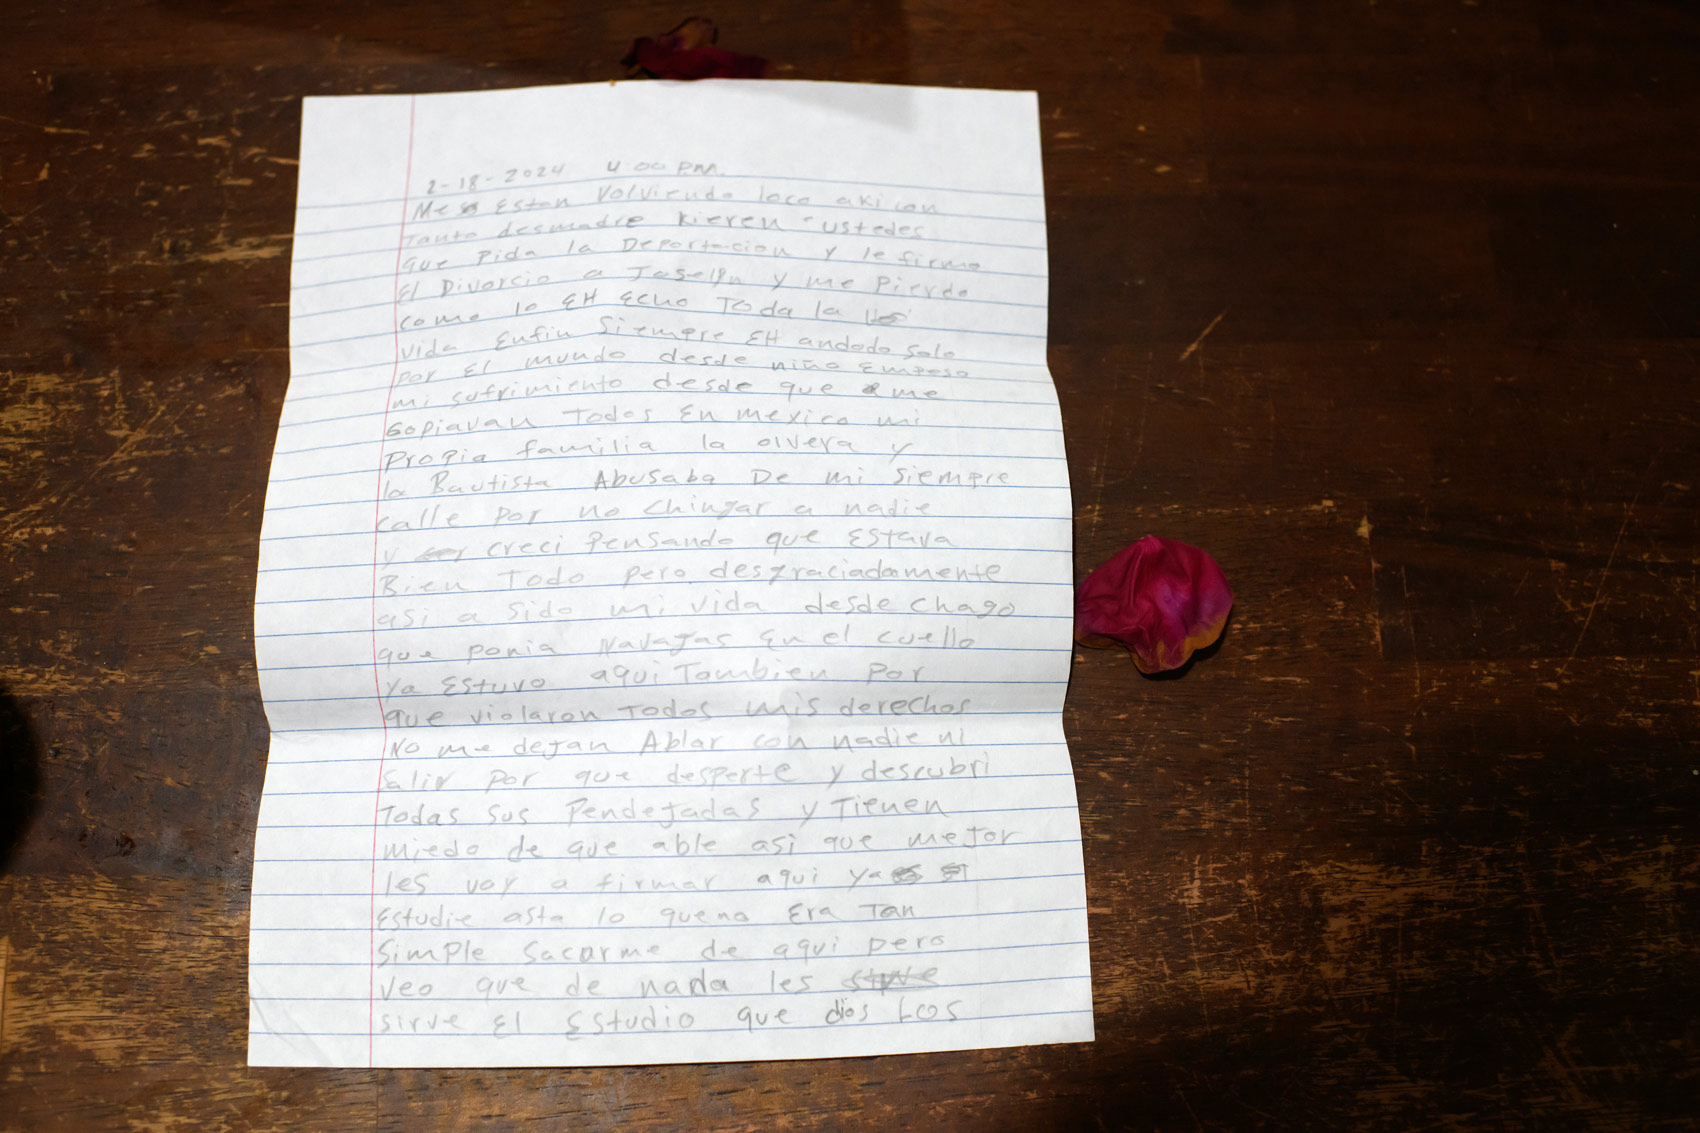 2-18-2024 4:00 PM.
Me Estan Volviendo loco aki con
Tanto desmadre kieren ustedes
que Pida la Deportacion y le firme
El Divorcio a Joselyn y me Pierdo
como lo EH Echo Toda la
vida Enfin Siempre EH andado solo
por El mundo desde niño Empeso
mi sufrimiento desde que me
Gopiavan Todos En mexico mi
propia familia la olvera y
la Bautista Abusaba De mi Siempre
calle por no Chingar a nadie
y creci Pensando que Estava
Bien Todo pero desgraciadamente
asi a Sido mi vida desde Chago
que ponia Navajas En el cuello
ya Estuvo aqui Tambien Por
que violaron Todos mis derechos
No me dejan Ablar con nadie ni
Salir por que desperte y descubri
Todas sus Pendejadas y Tienen
miedo de que able asi que mejor
les voy a firmar aqui ya
Estudie asta lo que no Era Tan
Simple Sacarme de aqui pero
veo que de nada les
sirve El Estudio que dios Los